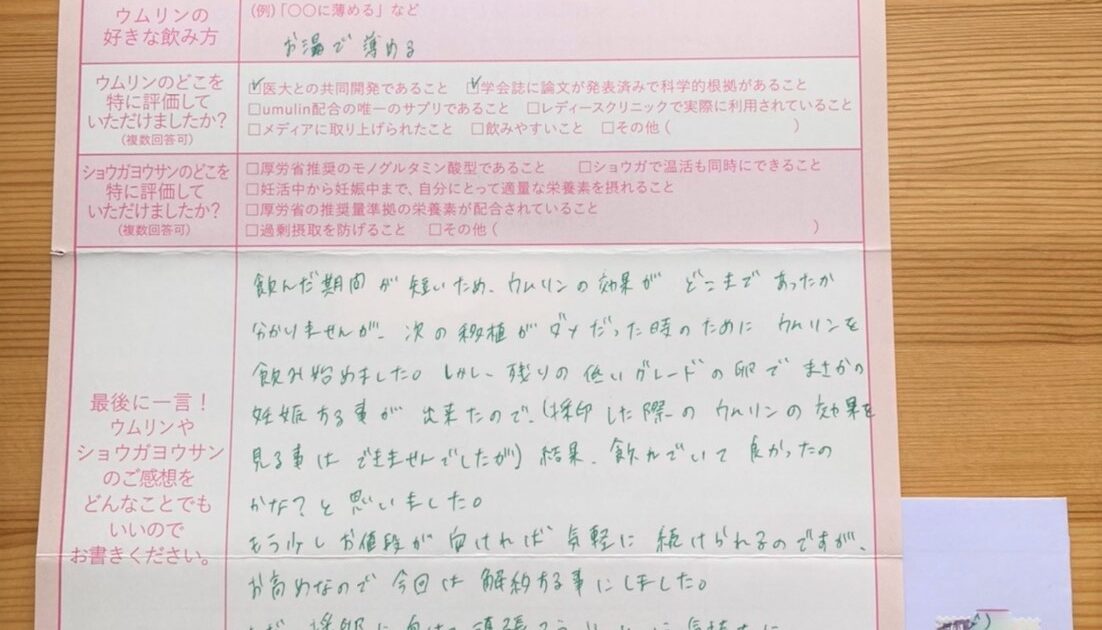 ウムリンの
好きな飲み方
(例)「〇〇に薄める」など
お湯で薄める
ウムリンのどこを
特に評価して
いただけましたか?
(複数回答可)
☑医大との共同開発であること ☑学会誌に論文が発表済みで科学的根拠があること
□umulin配合の唯一のサプリであること □レディースクリニックで実際に利用されていること
□メディアに取り上げられたこと □飲みやすいこと □その他( )
ショウガヨウサンのどこを
特に評価して
いただけましたか?
(複数回答可)
□厚労省推奨のモノグルタミン酸型であること □ショウガで温活も同時にできること
□妊活中から妊娠中まで、自分にとって適量な栄養素を摂れること
□厚労省の推奨量準拠の栄養素が配合されていること
□過剰摂取を防げること □その他( )
最後に一言!
ウムリンや
ショウガヨウサン
のご感想を
どんなことでも
いいので
お書きください。
飲んだ期間が短いため、ウムリンの効果がどこまであったか
分かりませんが、次の移植がダメだった時のためにウムリンを
飲み始めました。しかし、残りの低いグレードの卵でまさかの
妊娠する事が出来たので、(採卵した際のウムリンの効果を
見る事はできませんでしたが)結果、飲んでいて良かったの
かな?と思いました。
もう少しお値段が
ければ気軽に続けられるのですが、
お高めなので今回は解約する事にしました。